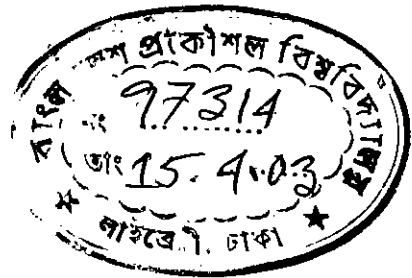 বাংলাদেশ প্রকৌশল বিশ্ববিদ্যালয়
নং 97314
তাং 15.4.03
★ লাইব্রেরী, ঢাকা ★